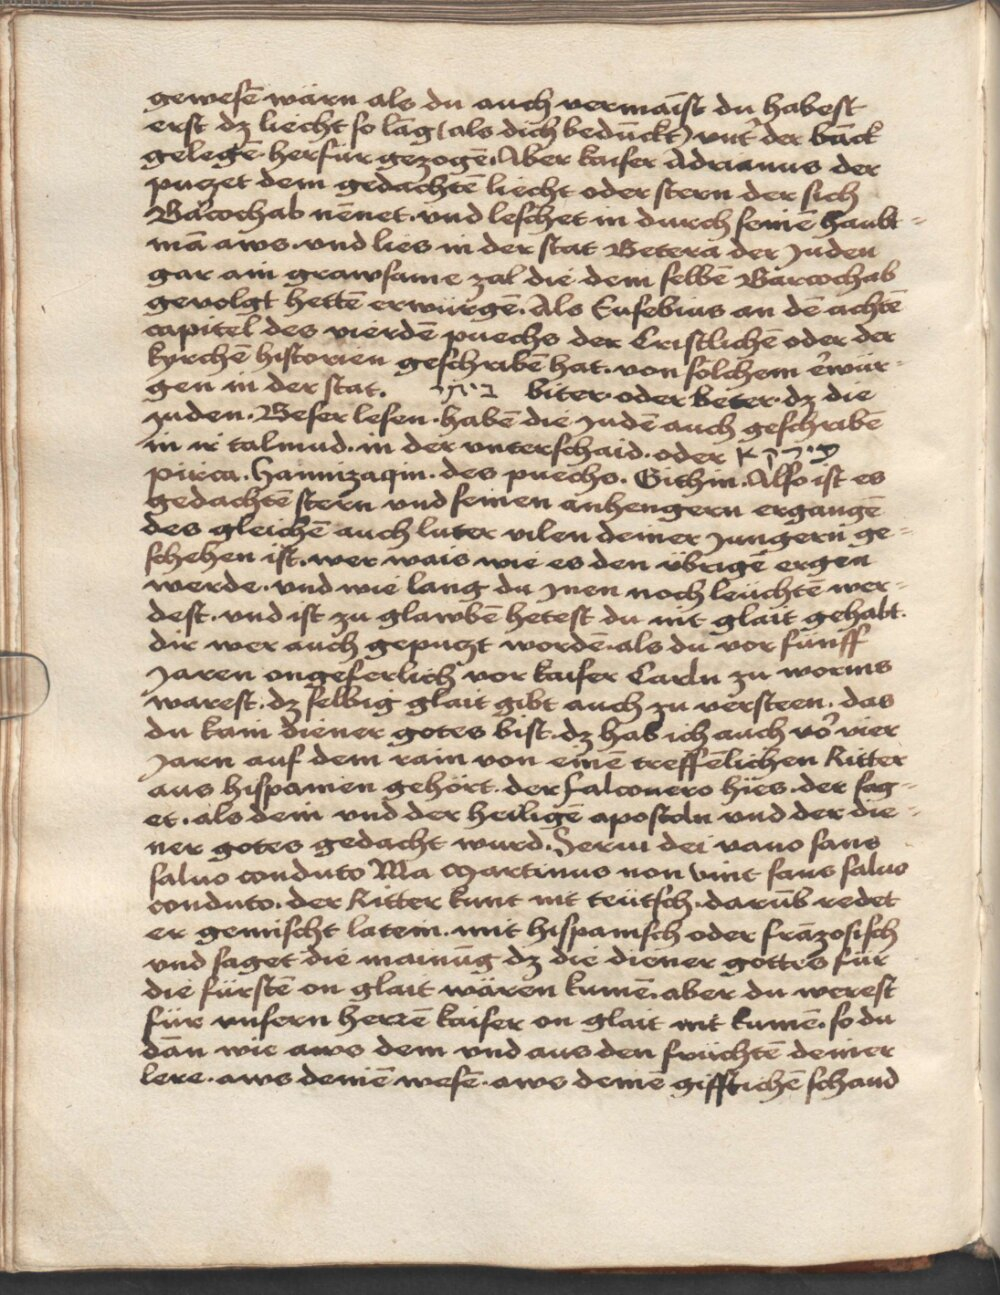 gewesē wärn als du auch vermaīst du habest
erst dz liecht so lāg (als dich bedunckt) vnt̄ der bāck
gelegē. herfür gezogē. Aber kaiser Adrianus der
puczet dem gedachtē liecht oder stern der sich
Barcochab nēnet. vnd leschet in durch seinē haubt-
mā aws. vnd lies in der stat Betera der Juden
gar ain grawsame zal die dem selbē Barcochab
gevolgt hettē erwürgē. Als Eusebius an dē achtē
capitel des vierdē puechs der Cristlichē oder der
kyrchē historien geschribē hat. von solchem erwür-
gen in der stat. ביתר biter. oder beter. dz die
Juden. Beser lesen. habē die Judē auch geschribē
in ir talmud. in der vnterschaid. oder פירקא
pirca. Hannizaqin. des puechs. Githin. Also ist es
gedachtē stern vnd seinen anhengern ergangē
des gleichē auch luter vilen deiner Jungern ge-
schehen ist. wer wais wie es den übrigē ergen
werde. vnd wie lang du Jnen noch leüchtē wer-
dest. vnd ist zu glawbē hetest du nit glait gehabt.
dir wer auch gepuczt wordē. als du vor fünff
Jaren ongeferlich vor kaiser Carln zu worms
warest. dz selbig glait gibt auch zu versteen. das
du kain diener gotes bist. dz hab ich auch vō vier
Jarn auf dem rain von einē treffēlichen Ritter
aus hispanien gehört. der falconero hies. der sag-
et. als dein vnd der heiligē aposteln vnd der die-
ner gotes gedacht wurd. Serui dei vano sans
saluo conduto Ma Martinus non vint sans saluo
conduto. der Ritter kunt nit teütsch. darūb redet
er gemischt latein. mit hispanisch oder frāzosisch
vnd saget die mainūg dz die diener gottes für
die fürstē on glait wären kumē. aber du werest
für vnsern herrē kaiser on glait nit kumē. so du
dān wie aws dem vnd aus den früchtē deiner
lere. aws deinē wesē. aws deinē gifftichē schand